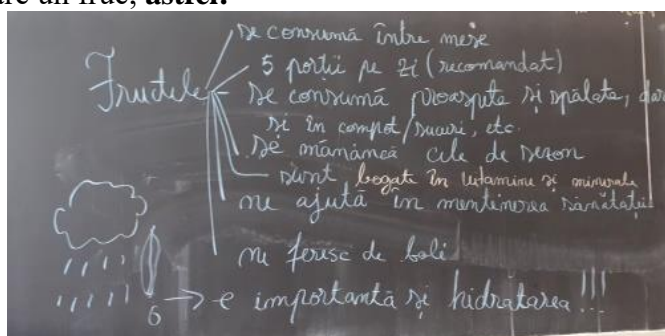 are un fruc, astfel:
se consumă între mese
5 porții pe zi (recomandat)
Fructele - se consumă proaspete și spălate, dar
și în compot/sucuri, etc.
se mănâncă cele de sezon
sunt bogate în vitamine și minerale
ne ajută în menținerea sănătății
ne feresc de boli
→ e importantă și hidratarea!!!